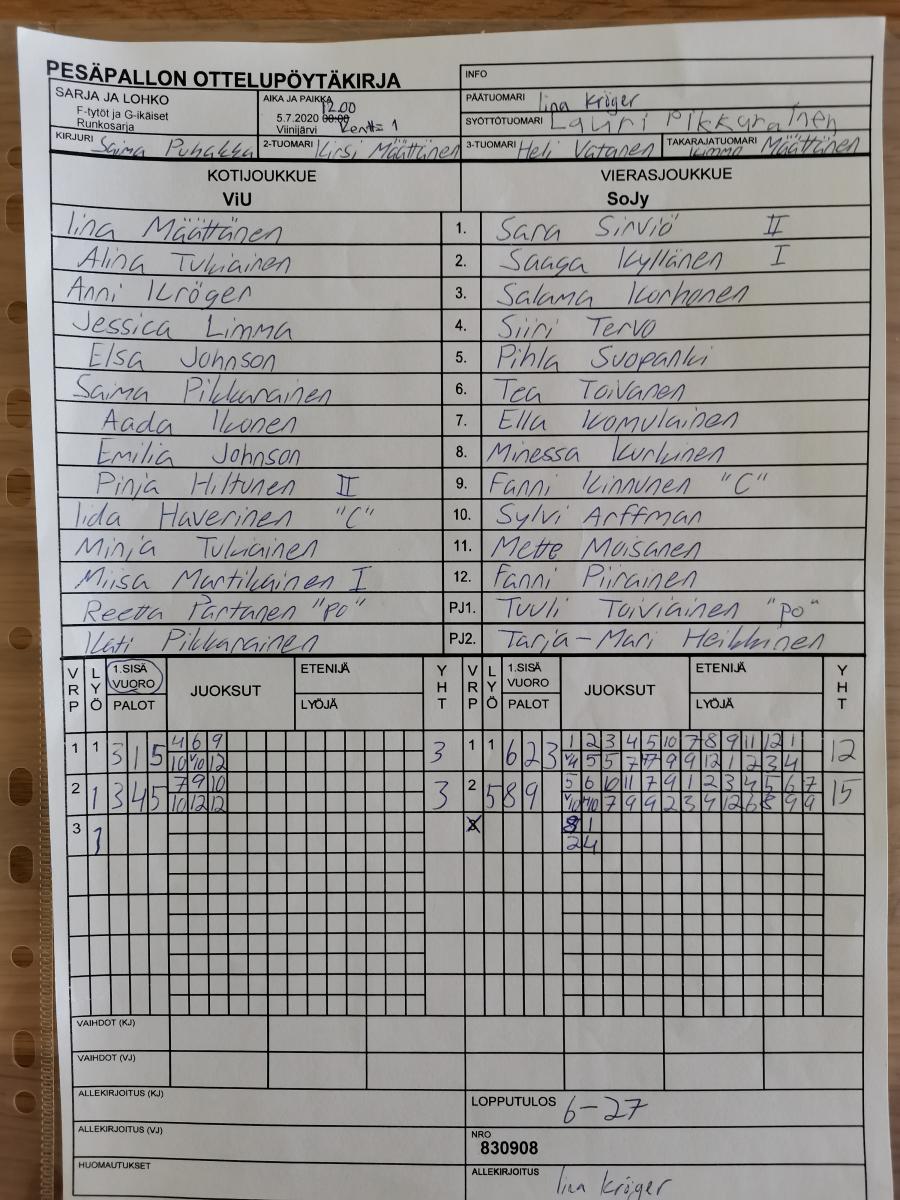 PESÄPALLON OTTELUPÖYTÄKIRJA
INFO
SARJA JA LOHKO
F-tytöt ja G-ikäiset
Runkosarja
AIKA JA PAIKKA 12.00
5.7.2020 00:00
Viinijärvi Kenttä 1
PÄÄTUOMARI Iina Kröger
SYÖTTÖTUOMARI Lauri Pikkarainen
KIRJURI Saima Puhakka
2-TUOMARI Kirsi Määttänen
3-TUOMARI Heli Vatanen
TAKARAJATUOMARI Kimmo Määttänen
KOTIJOUKKUE VIERASJOUKKUE
ViU SoJy
Iina Määttänen 1. Sara Sirviö II
Alina Tukiainen 2. Saaga Kyllänen I
Anni Kröger 3. Salama Korhonen
Jessica Limma 4. Siiri Tervo
Elsa Johnson 5. Pihla Suopanki
Saima Pikkarainen 6. Tea Toivanen
Aada Ikonen 7. Ella Komulainen
Emilia Johnson 8. Minessa Kurkinen
Pinja Hiltunen II 9. Fanni Kinnunen "C"
Iida Haverinen "C" 10. Sylvi Arffman
Minja Tukiainen 11. Mette Moisanen
Miisa Martikainen I 12. Fanni Piirainen
Reetta Partanen "po" PJ1. Tuuli Toiviainen "po"
Kati Pikkarainen PJ2. Tarja-Mari Heikkinen
VRP LYÖ 1.SISÄ VUORO PALOT JUOKSUT ETENIJÄ LYÖJÄ YHT VRP LYÖ 1.SISÄ VUORO PALOT JUOKSUT ETENIJÄ LYÖJÄ YHT
1 1 3 1 5 4 6 9 3 1 1 6 2 3 1 2 3 4 5 10 7 8 9 11 12 1 12
10 10 12 4 5 5 7 7 9 9 12 1 2 3 4
2 1 3 4 5 7 9 10 3 2 5 8 9 5 6 10 11 7 9 1 2 3 4 5 6 7 15
10 12 12 10 10 7 9 9 2 3 4 12 6 8 9 9
3 1 8 1
2 4
VAIHDOT (KJ)
VAIHDOT (VJ)
ALLEKIRJOITUS (KJ)
LOPPUTULOS 6-27
ALLEKIRJOITUS (VJ)
NRO
830908
HUOMAUTUKSET
ALLEKIRJOITUS Iina Kröger